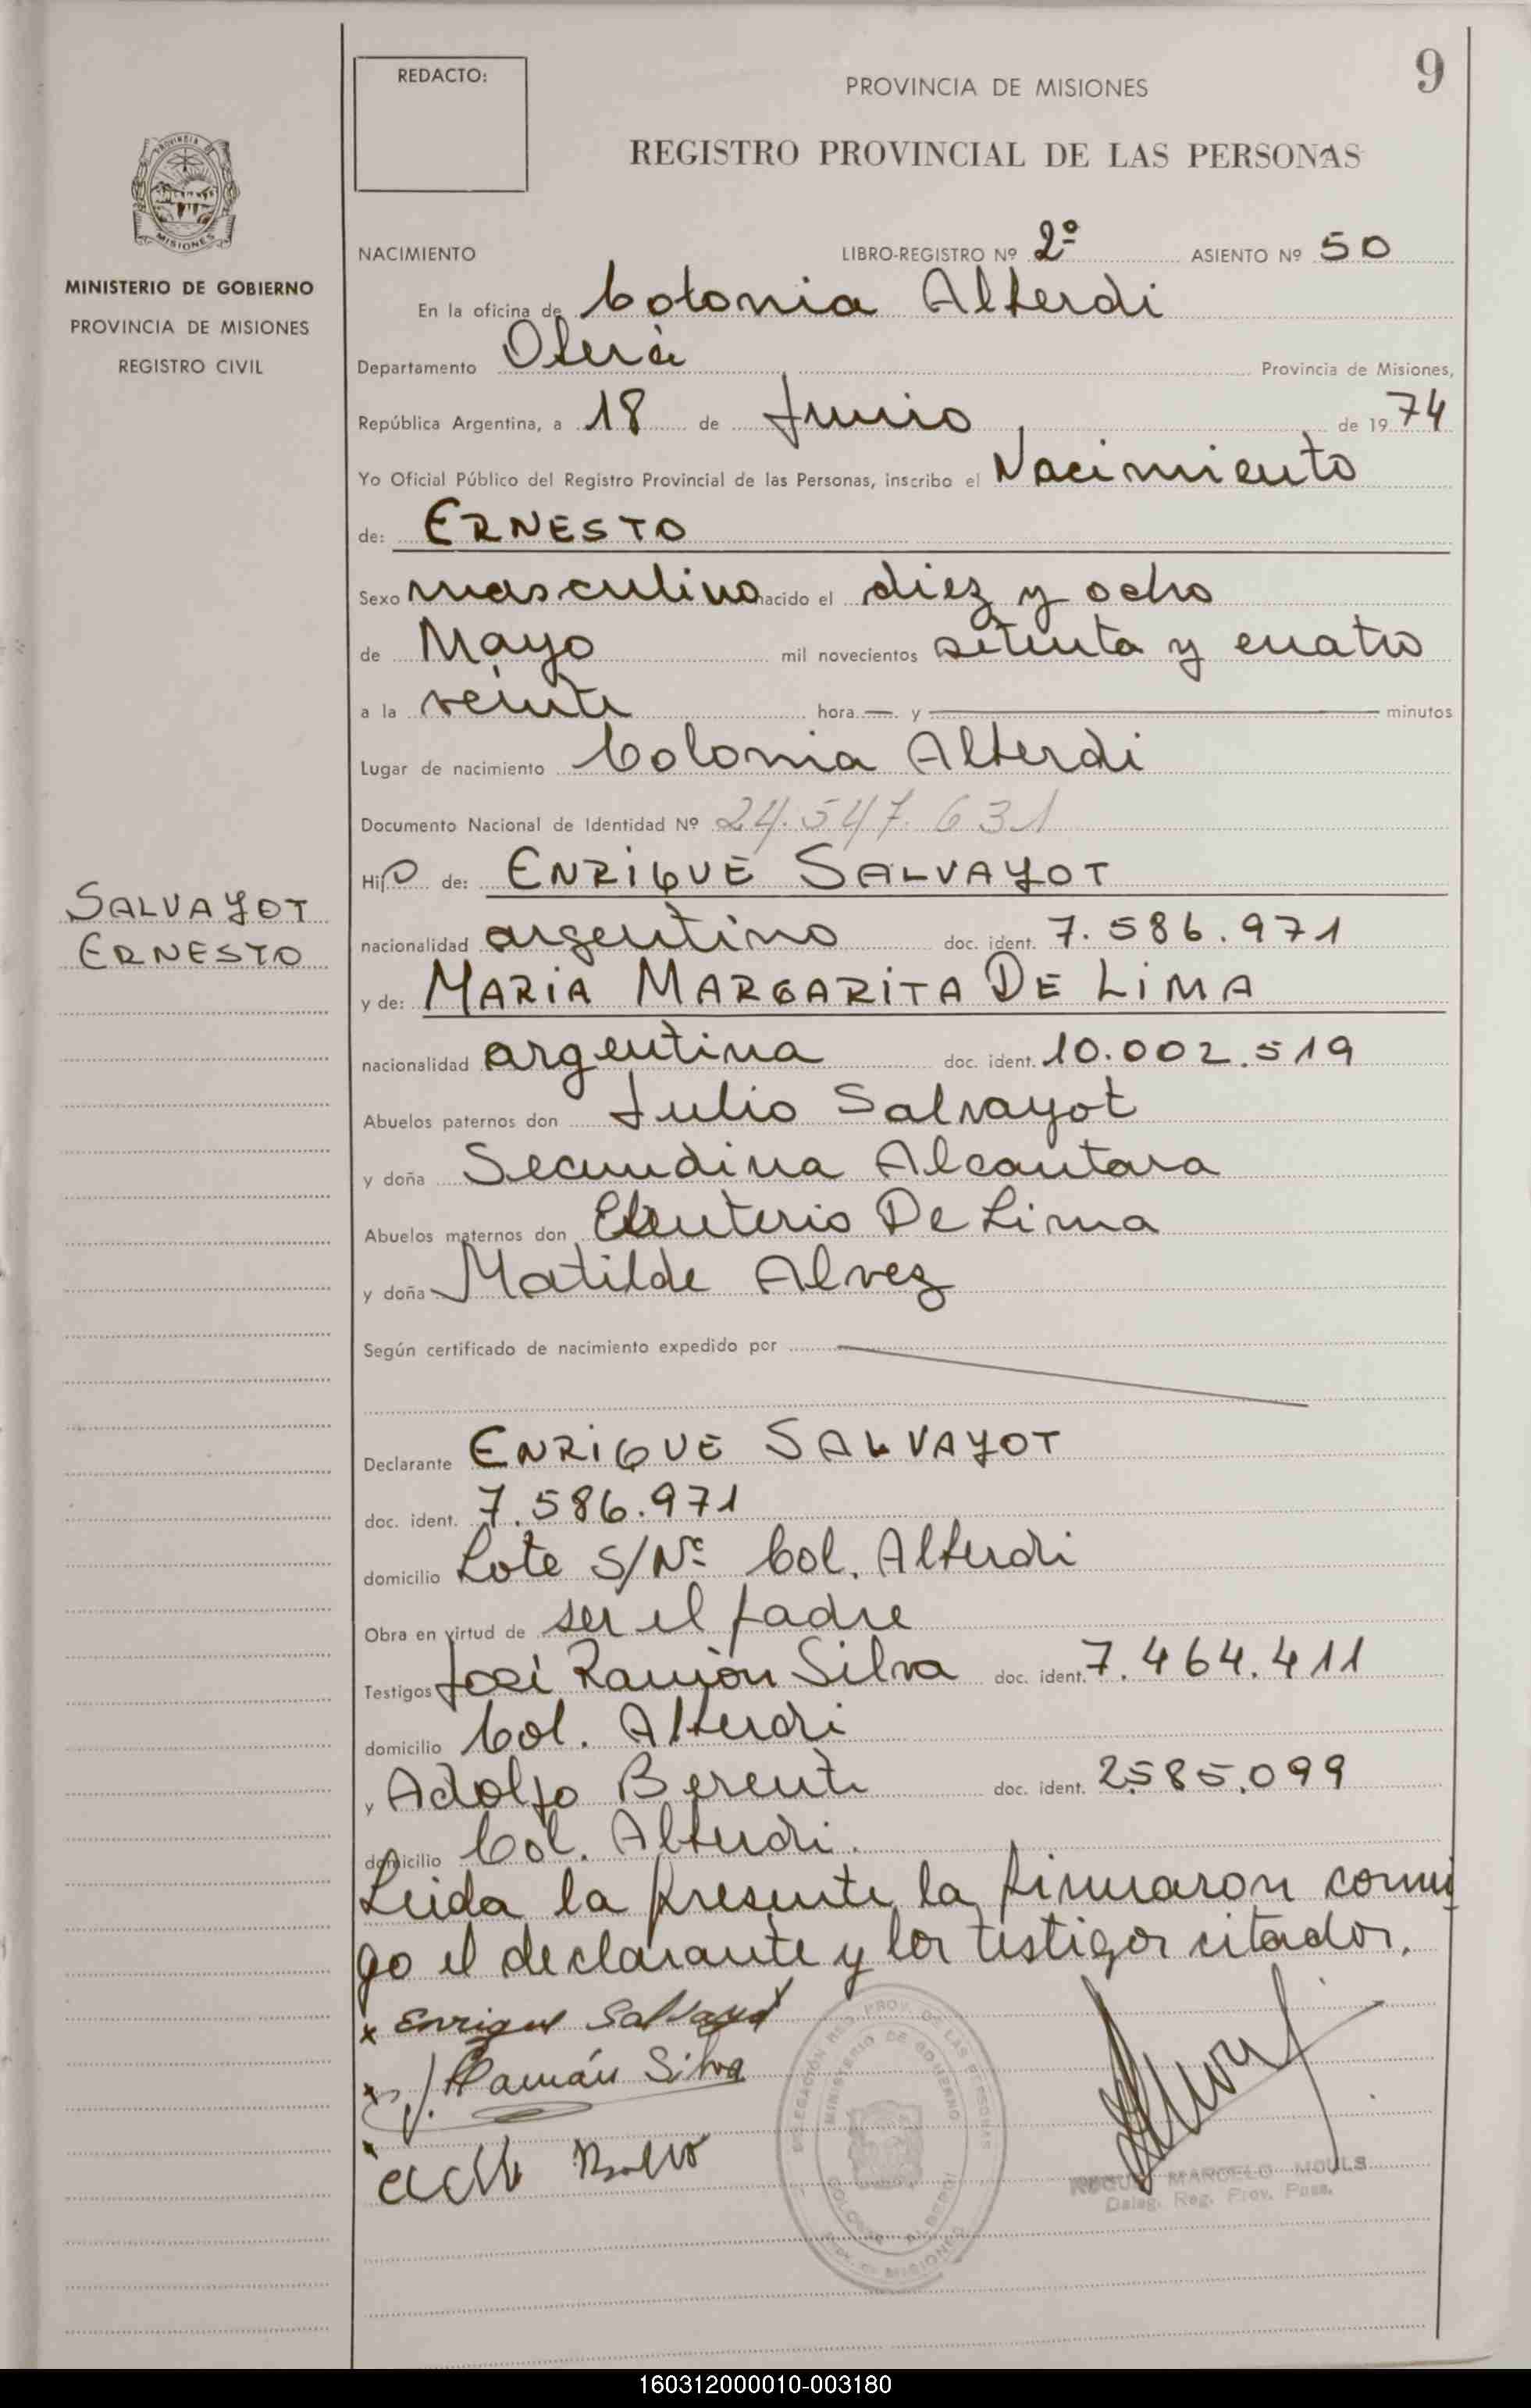 9
REDACTO:
PROVINCIA DE MISIONES
REGISTRO PROVINCIAL DE LAS PERSONAS
PROVINCIA DE
MISIONES
MINISTERIO DE GOBIERNO
PROVINCIA DE MISIONES
REGISTRO CIVIL
NACIMIENTO LIBRO-REGISTRO Nº 2º ASIENTO Nº 50
En la oficina de Colonia Alberdi
Departamento Oberá Provincia de Misiones,
República Argentina, a 18 de Junio de 1974
Yo Oficial Público del Registro Provincial de las Personas, inscribo el Nacimiento
de: ERNESTO
Sexo masculino nacido el diez y ocho
de Mayo mil novecientos setenta y cuatro
a la veinte hora — y — minutos
Lugar de nacimiento Colonia Alberdi
Documento Nacional de Identidad Nº 24.547.631
Hijo de: ENRIQUE SALVAYOT
SALVAYOT
ERNESTO
nacionalidad argentino doc. ident. 7.586.971
y de: MARIA MARGARITA DE LIMA
nacionalidad argentina doc. ident. 10.002.519
Abuelos paternos don Julio Salvayot
y doña Secundina Alcantara
Abuelos maternos don Eleuterio De Lima
y doña Matilde Alvez
Según certificado de nacimiento expedido por
Declarante ENRIQUE SALVAYOT
doc. ident. 7.586.971
domicilio Lote S/Nº Col. Alberdi
Obra en virtud de ser el padre
Testigos José Ramón Silva doc. ident. 7.464.411
domicilio Col. Alberdi
y Adolfo Berent doc. ident. 2585.099
domicilio Col. Alberdi.
Leida la presente, la firmaron conmi
go el declarante y los testigos citados.
x Enrique Salvayot
x J. Ramón Silva
x
DELEGACIÓN REG. PROV. DE LAS PERSONAS
MINISTERIO DE GOBIERNO
COLONIA ALBERDI
MISIONES
MARCELO MOULS
Deleg. Reg. Prov. Pers.
160312000010-003180